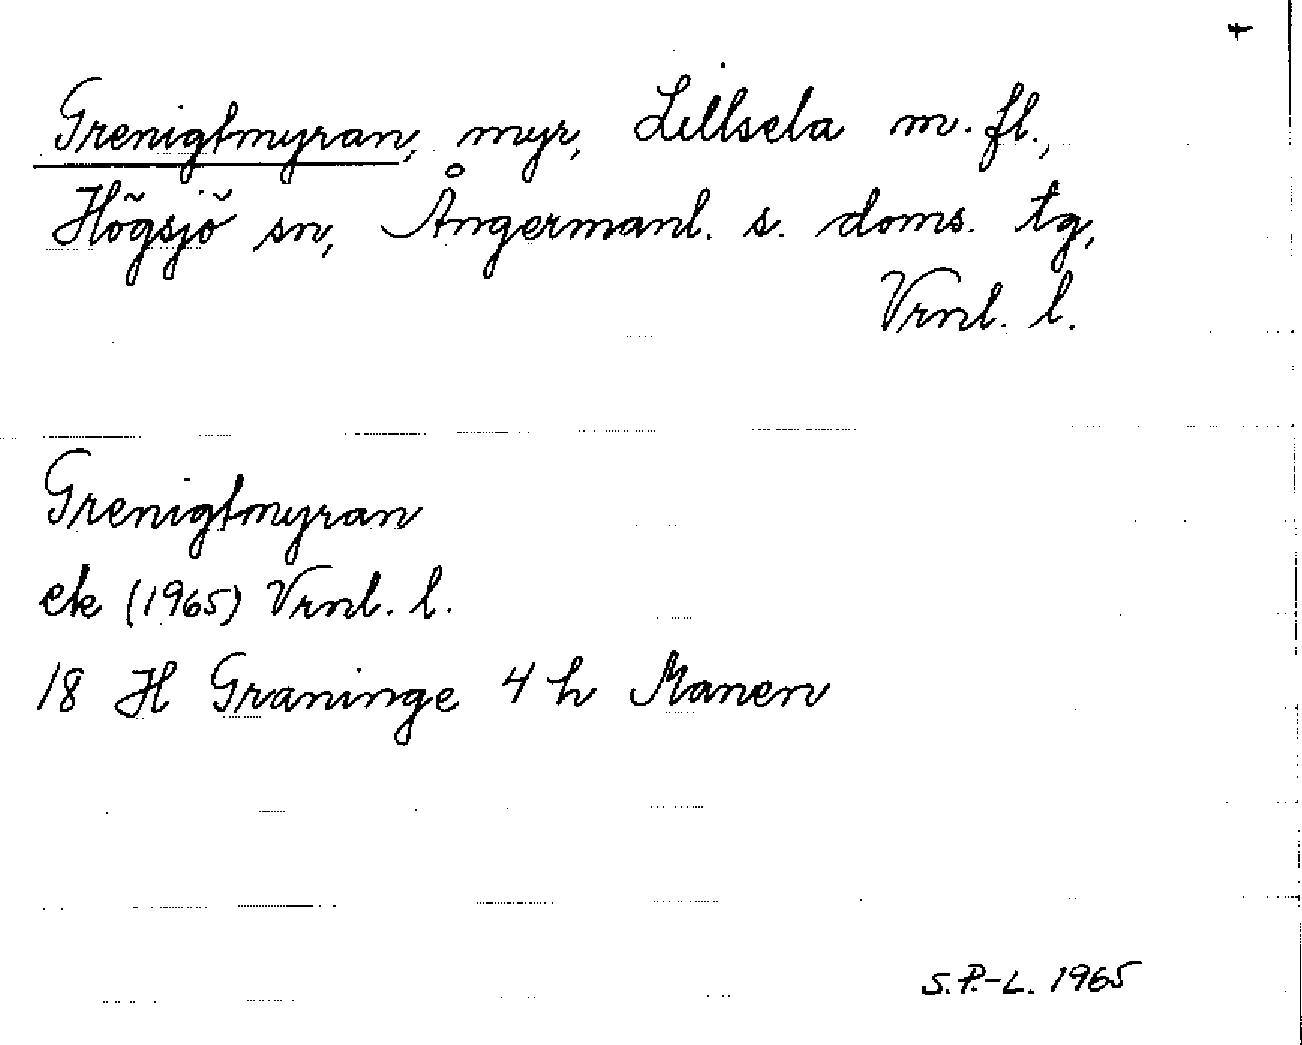 Grenigtmyran, myr, Lillsela m.fl.,
Högsjö sn, Ångermanl. s. doms. tg,
Vrnl. l.
Grenigtmyran
ek (1965) Vrnl. l.
18 H Graninge 4 h Manen
S.P.-L. 1965